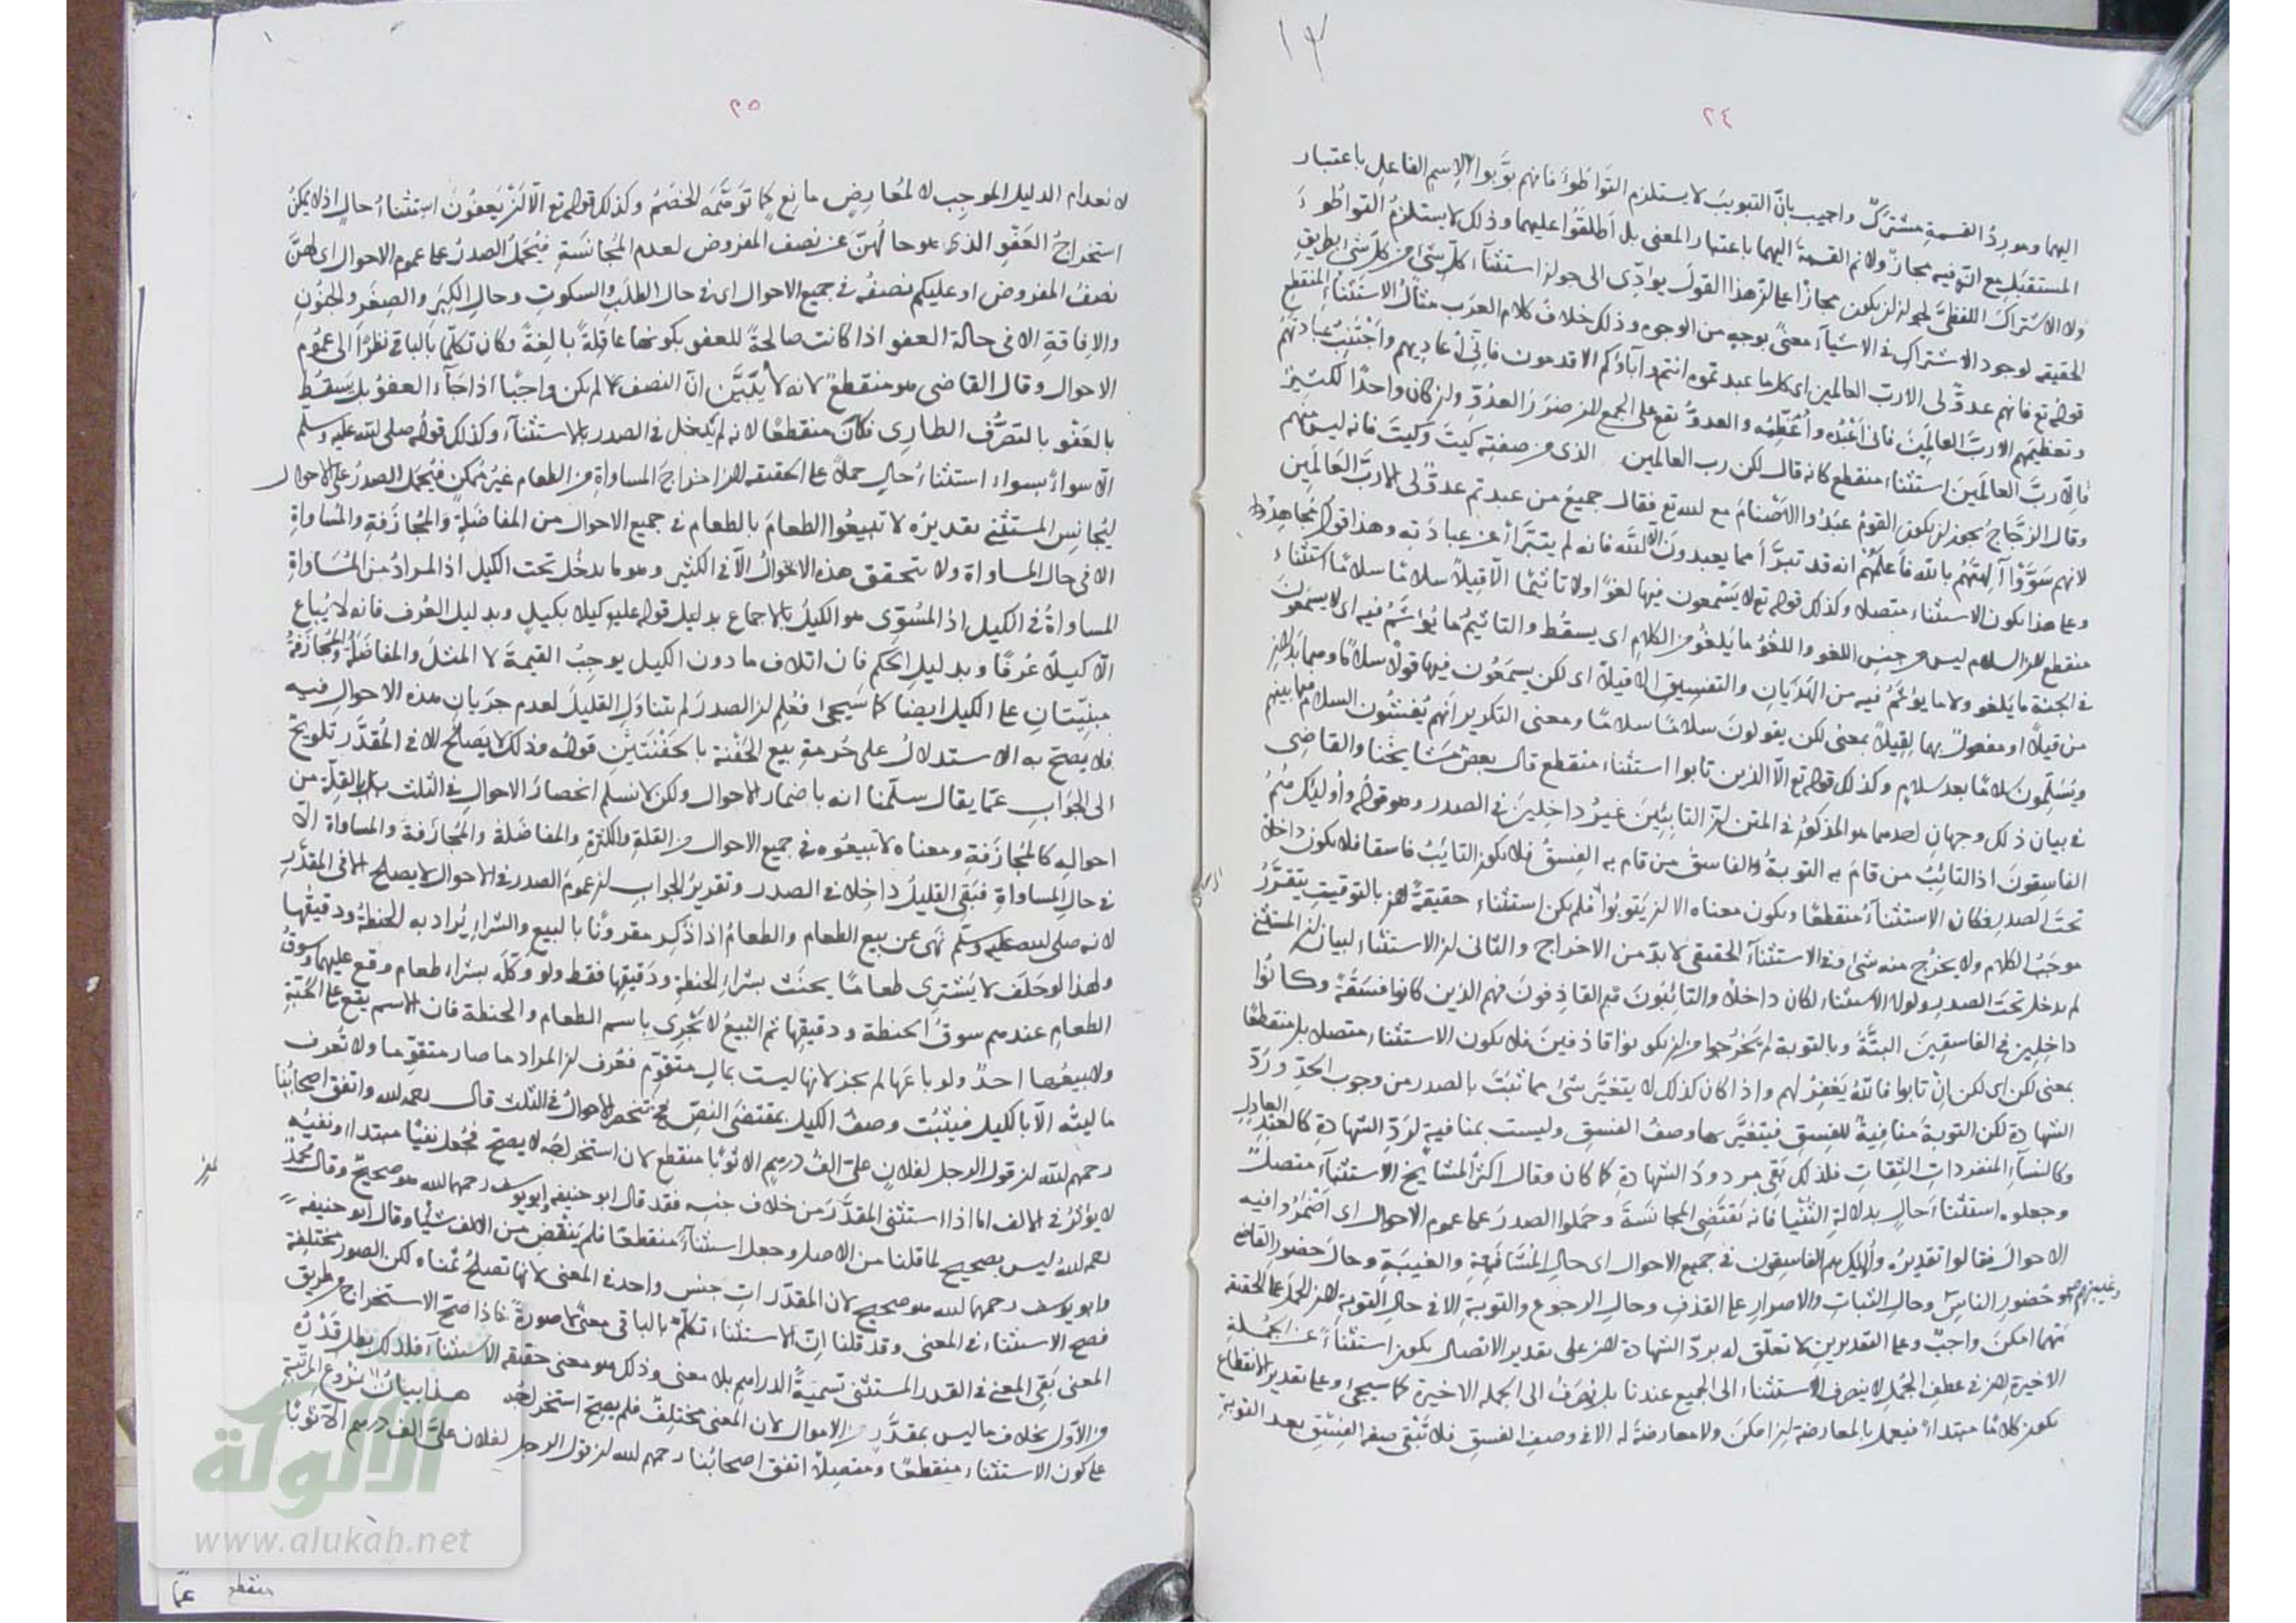 ٢٤
اليهما ومورد القسمة مشترك واجيب بان التبويب لا يستلزم التواطؤ فانهم بوبوا الاسم الفاعل باعتبار
المستقبل مع انه فيه مجاز ولانم القسمة اليهما باعتبار المعنى بل اطلقوا عليهما وذلك لا يستلزم التواطؤ
ولا الاشتراك اللفظي لجواز ان يكون مجازا على ان هذا القول يؤدي الى جواز استثناء كل شيء من كل شيء بطريق
الحقيقة لوجود الاشتراك في الاشياء معنى بوجه من الوجوه وذلك خلاف كلام العرب مثال الاستثناء المنقطع
قوله تع فانهم عدو لي الا رب العالمين اي كل ما عبدتموه انتم وآباؤكم الاقدمون فاني اعاديهم واجتنب عبادتهم
وتعظيمهم الا رب العالمين فاني اعبده واعظمه والعدو يقع على الجمع لان ضرر العدو وان كان واحدا لكثير
فالا رب العالمين استثناء منقطع كانه قال لكن رب العالمين الذي من صفته كيت وكيت فانه ليس منهم
وقال الزجاج يجوز ان يكون القوم عبدوا الاصنام مع لله تع فقال جميع من عبدتم عدو لي الا رب العالمين
لانهم سووا آلهتهم بالله فاعلمهم انه قد تبرأ مما يعبدون الا لله فانه لم يتبرأ عن عبادته وهذا قول مجاهد
وعلى هذا يكون الاستثناء متصلا وكذلك قوله تع لا يسمعون فيها لغوا ولا تاثيما الا قيلا سلاما سلاما استثناء
منقطع لان السلام ليس من جنس اللغو واللغو ما يلغو من الكلام اي يسقط والتاثيم ما يؤثم فيه اي لا يسمعون
في الجنة ما يلغو ولا ما يؤثم فيه من الهذيان والتفسيق الا قيلا اي لكن يسمعون فيها قولا سلاما
من قيلا او مفعول بهما لقيلا بمعنى لكن يقولون سلاما سلاما ومعنى التكرير انهم يفشون السلام فيما بينهم
ويسلمون سلاما بعد سلام وكذلك قوله تع الا الذين تابوا استثناء منقطع قال بعض مشايخنا والقاضي
في بيان ذلك وجهان احدهما هو المذكور في المتن ان التائبين غير داخلين في الصدر وهو قوله واولئك هم
الفاسقون اذ التائب من قام به التوبة والفاسق من قام به الفسق فلا يكون التائب فاسقا فلا يكون داخلا
تحت الصدر فكان الاستثناء منقطعا ويكون معناه الا ان يتوبوا فلم يكن استثناء حقيقة لان بالتوقيت يتقرر
موجب الكلام ولا يخرج منه شيء وفي الاستثناء الحقيقي لا بد من الاخراج والثاني ان الاستثناء لبيان ان المستثنى
لم يدخل تحت الصدر ولولا الاستثناء لكان داخلا والتائبون هم القاذفون فهم الذين كانوا فسقة وكانوا
داخلين في الفاسقين البتة وبالتوبة لم يخرجوا من ان يكونوا قاذفين فلا يكون الاستثناء متصلا بل منقطعا
بمعنى لكن اي لكن ان تابوا فالله يغفر لهم واذا كان كذلك لا يتغير شيء مما ثبت بالصدر من وجوب الحد ورد
الشهادة لكن التوبة منافية للفسق فيتغير بها وصف الفسق وليست بمنافية لرد الشهادة كالعبد العادل
وكالنساء المنفردات الثقات فلذلك بقي مردود الشهادة كما كان وقال اكثر المشايخ الاستثناء متصل
وجعلوه استثناء حال بدلالة الثنيا فانه تقتضي المجانسة وحملوا الصدر على عموم الاحوال اي اضمروا فيه
الاحوال فقالوا تقديره واولئك هم الفاسقون في جميع الاحوال اي حال المشافهة والغيبة وحال حضور القاضي
وغيبتهم صح وحضور الناس وحال الثبات والاصرار على القذف وحال الرجوع والتوبة الا في حال التوبة لان الحمل على الحقيقة
مهما امكن واجب وعلى التقديرين لا تعلق له برد الشهادة لان على تقدير الاتصال يكون استثناء عن الجملة
الاخيرة لان في عطف الجمل لا ينصرف الاستثناء الى الجميع عندنا بل يصرف الى الجملة الاخيرة كما سيجيء وعلى تقدير الانقطاع
يكون كلاما مبتدأ فيعمل بالمعارضة ان امكن ولا معارضة له الا في وصف الفسق فلا تبقى صفة الفسق بعد التوبة
٢٥
لانعدام الدليل الموجب لا لمعارض مانع كما توهمه الخصم وكذلك قوله تع الا ان يعفون استثناء حال اذ لا يمكن
استخراج العفو الذي هو حالهن عن نصف المفروض لعدم المجانسة فيحمل الصدر على عموم الاحوال اي لهن
نصف المفروض او عليكم نصفه في جميع الاحوال اي في حال الطلب والسكوت وحال الكبر والصغر والجنون
والافاقة الا في حالة العفو اذا كانت صالحة للعفو بكونها عاقلة بالغة وكان تكلما بالباقي نظرا الى عموم
الاحوال وقال القاضي هو منقطع لانه لا يتبين ان النصف لم يكن واجبا اذا جاء العفو بل يسقط
بالعفو بالتصرف الطاري فكان منقطعا لانه لم يدخل في الصدر بالاستثناء وكذلك قوله صلى الله عليه وسلم
الا سواء بسواء استثناء حال حملا على الحقيقة لان اخراج المساواة من الطعام غير ممكن فيحمل الصدر على الاحوال
ليجانس المستثنى تقديره لا تبيعوا الطعام بالطعام في جميع الاحوال من المفاضلة والمجازفة والمساواة
الا في حال المساواة ولا يتحقق هذه الاحوال الا في الكثير وهو ما يدخل تحت الكيل اذ المراد من المساواة
المساواة في الكيل اذ المسوى هو الكيل بالاجماع بدليل قوله عليو كيلا بكيل وبدليل العرف فانه لا يباع
الا كيلا عرفا وبدليل الحكم فان اتلاف ما دون الكيل يوجب القيمة لا المثل والمفاضلة والمجازفة
مبنيتان على الكيل ايضا كما سيجيء فعلم ان الصدر لم يتناول القليل لعدم جريان هذه الاحوال فيه
فلا يصح به الاستدلال على حرمة بيع الحفنة بالحفنتين قوله وذلك لا يصلح الا في المقدر تلويح
الى الجواب عما يقال سلمنا انه باضمار الاحوال ولكن لا نسلم انحصار الاحوال في الثلث بل القلة من
احواله كالمجازفة ومعناه لا تبيعوه في جميع الاحوال من القلة والكثرة والمفاضلة والمجازفة والمساواة الا
في حال المساواة فبقي القليل داخلا في الصدر وتقرير الجواب ان عموم الصدر في الاحوال لا يصلح الا في المقدر
لانه صلى الله عليه وسلم نهى عن بيع الطعام والطعام اذا ذكر مقرونا بالبيع والشراء يراد به الحنطة ودقيقها
ولهذا لو حلف لا يشتري طعاما يحنث بشراء الحنطة ودقيقها فقط ولو وكله بشراء طعام وقع عليهما وسوق
الطعام عندهم سوق الحنطة ودقيقها ثم البيع لا تجري باسم الطعام والحنطة فان الاسم يقع على الحبة
ولا يبيعها احد ولو باعها لم يجز لانها ليست بمال متقوم فعرف ان المراد ما صار متقوما ولا تعرف
ماليته الا بالكيل فيثبت وصف الكيل بمقتضى النص فح تنحصر الاحوال في الثلث قال رحمه لله واتفق اصحابنا
رحمهم لله ان قول الرجل لفلان علي الف درهم الا ثوبا منقطع لان استخراجه لا يصح فجعل نفيا مبتدأ ونفيه
لا يؤثر في الالف اما اذا استثنى المقدر من خلاف جنسه فقد قال ابو حنيفة وابو يوسف رحمهما لله هو صحيح وقال محمد
رحمه لله ليس بصحيح لما قلنا من الاصل وجعل استثناء منقطعا فلم ينقض من الالف شيئا وقال ابو حنيفة
وابو يوسف رحمهما لله هو صحيح لان المقدرات جنس واحد في المعنى لانها تصلح ثمنا ولكن الصور مختلفة
فصح الاستثناء في المعنى وقد قلنا ان الاستثناء تكلم بالباقي معنى لا صورة فاذا صح الاستخراج من طريق
المعنى بقي المعنى في القدر المستثنى تسمية الدراهم بلا معنى وذلك هو معنى حقيقة الاستثناء فلذلك بطل قدره
من الاول بخلاف ما ليس بمقدر من الاموال لان المعنى مختلف فلم يصح استخراجه هذا بيان
على كون الاستثناء منقطعا ومتصلا اتفق اصحابنا رحمهم لله ان قول الرجل لفلان علي الف درهم الا ثوبا
منقطع
الألوكة
www.alukah.net